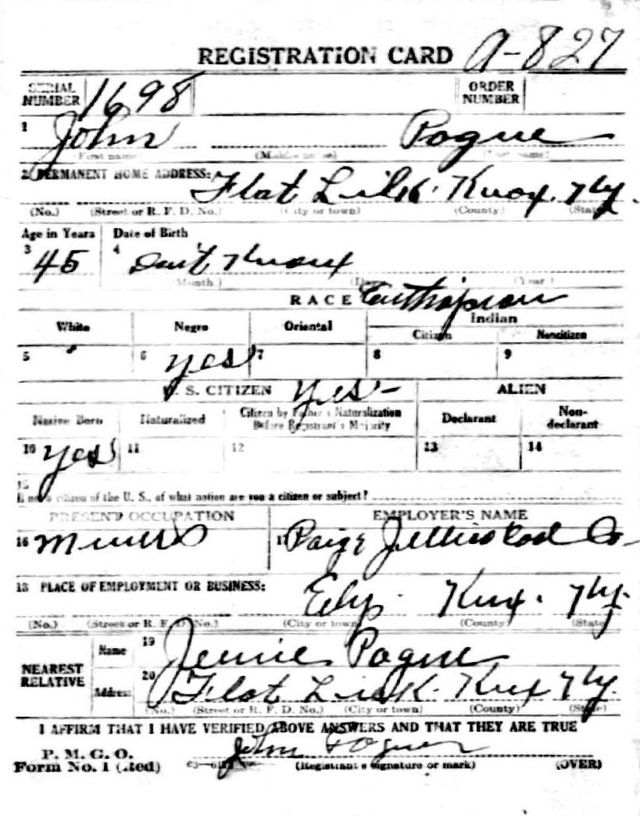 REGISTRATION CARD A-827
SERIAL NUMBER 1698 ORDER NUMBER
1 John Pogue
(First name) (Middle name) (Last name)
2 PERMANENT HOME ADDRESS: Flat Lick. Knox. Ky.
(No.) (Street or R. F. D. No.) (City or town) (County) (State)
Age in Years Date of Birth
3 45 4 Don't Know
(Month.) (Day.) (Year.)
RACE
White Negro Oriental Indian
Citizen Noncitizen
5 6 yes 7 8 9
U. S. CITIZEN yes- ALIEN
Native Born Naturalized Citizen by Father's Naturalization Before Registrant's Majority Declarant Non-declarant
10 yes 11 12 13 14
15
If not a citizen of the U. S., of what nation are you a citizen or subject?
PRESENT OCCUPATION EMPLOYER'S NAME
16 17 Paige Jellico Coal Co-
18 PLACE OF EMPLOYMENT OR BUSINESS:
Knox. Ky.
(No.) (Street or R. F. D. No.) (City or town) (County) (State)
NEAREST RELATIVE
Name 19 Jennie Pogue
Address 20 Flat Lick. Knox Ky.
(No.) (Street or R. F. D. No.) (City or town) (County) (State)
I AFFIRM THAT I HAVE VERIFIED ABOVE ANSWERS AND THAT THEY ARE TRUE
P. M. G. O.
Form No. 1 (Red) John Pogue
(Registrant's signature or mark) (OVER)